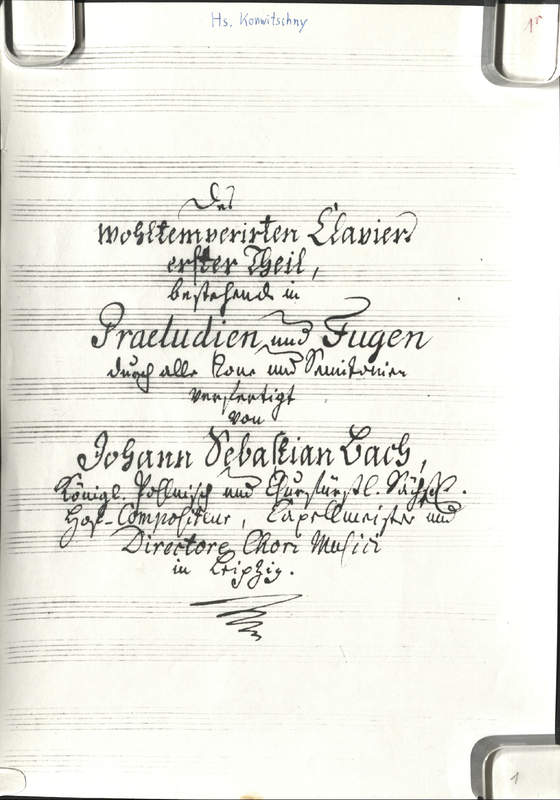 Hs. Konwitschny
1r
Des
wohltemperirten Claviers
erster Theil,
bestehend in
Praeludien und Fugen
durch alle Tone und Semitonien
verfertigt
von
Johann Sebastian Bach,
Königl. Pohlnisch und Churfürstl. Sächß.
Hof-Compositeur, Capellmeister und
Directore Chori Musici
in Leipzig.
1